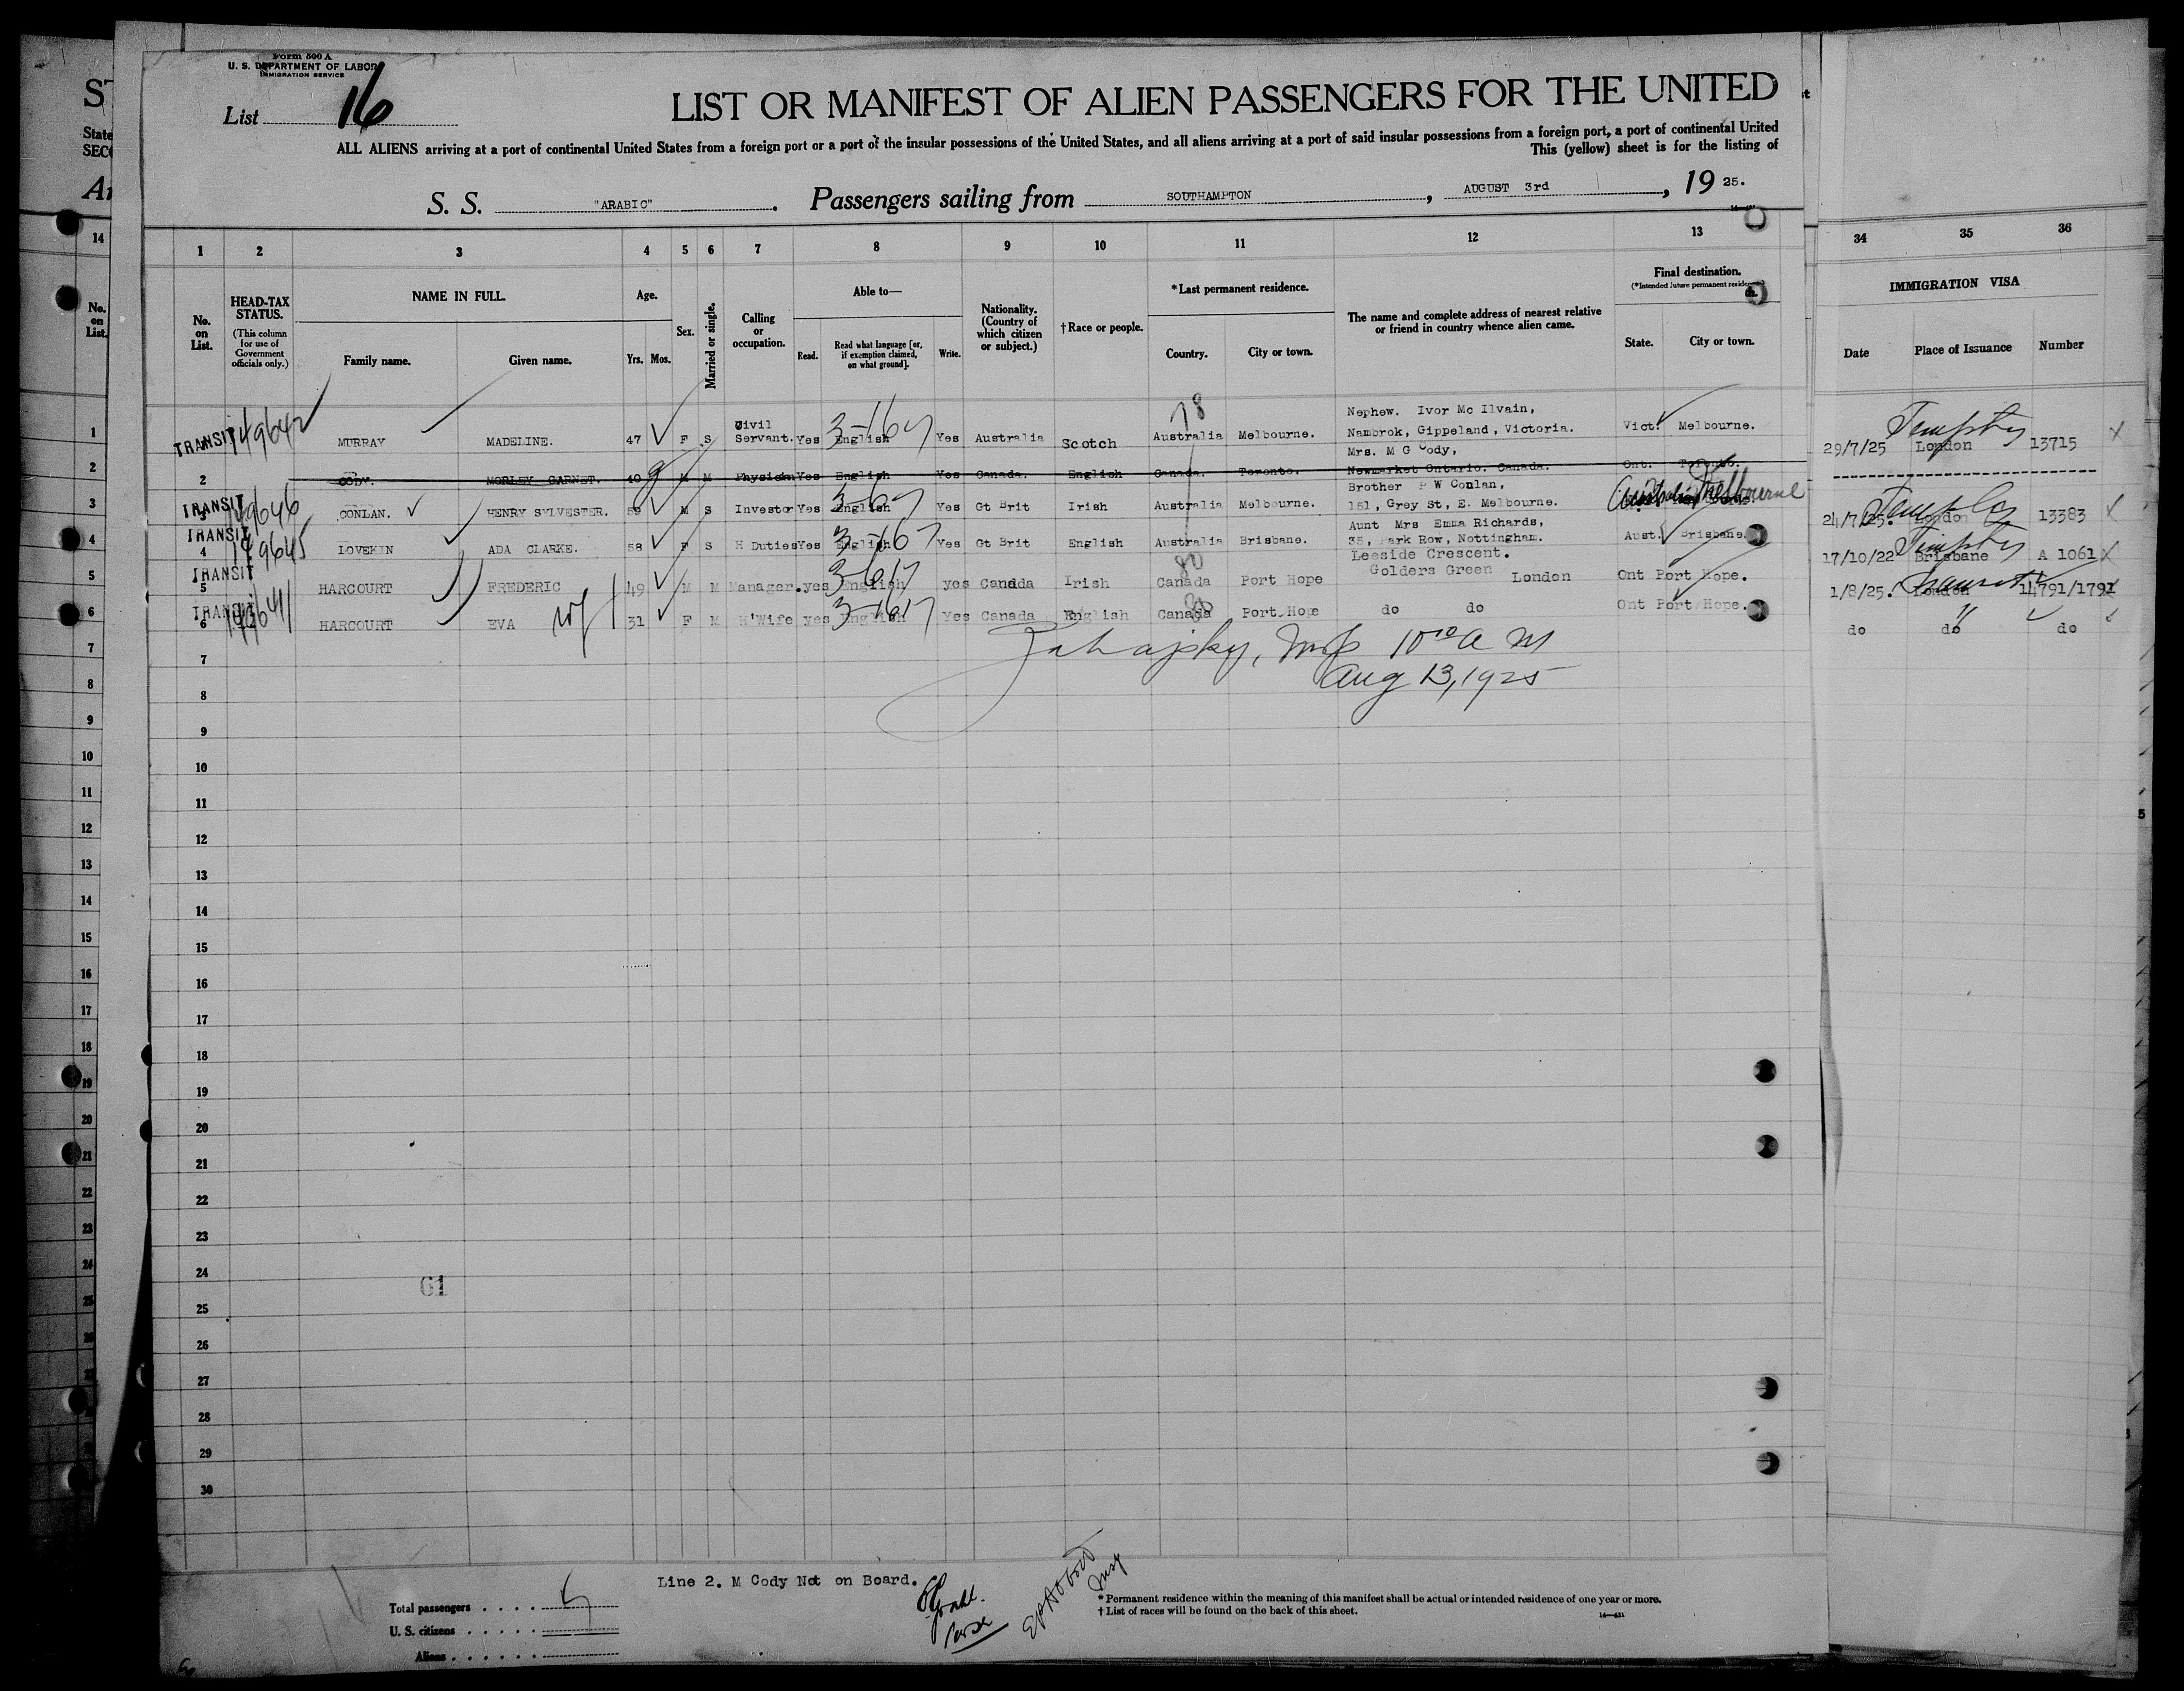 Form 500 A
U. S. DEPARTMENT OF LABOR
IMMIGRATION SERVICE
List 16
LIST OR MANIFEST OF ALIEN PASSENGERS FOR THE UNITED
ALL ALIENS arriving at a port of continental United States from a foreign port or a port of the insular possessions of the United States, and all aliens arriving at a port of said insular possessions from a foreign port, a port of continental United
This (yellow) sheet is for the listing of
S. S. "ARABIC". Passengers sailing from SOUTHAMPTON, AUGUST 3rd, 19 25.
1 2 3 4 5 6 7 8 9 10 11 12 13 34 35 36
No. on List.
HEAD-TAX STATUS.
(This column for use of Government officials only.)
NAME IN FULL.
Family name. Given name.
Age.
Yrs. Mos.
Sex.
Married or single.
Calling or occupation.
Able to—
Read. Read what language [or, if exemption claimed, on what ground]. Write.
Nationality. (Country of which citizen or subject.)
†Race or people.
*Last permanent residence.
Country. City or town.
The name and complete address of nearest relative or friend in country whence alien came.
Final destination.
(*Intended future permanent residence.)
State. City or town.
IMMIGRATION VISA
Date Place of Issuance Number
1 TRANSIT 149642 MURRAY MADELINE. 47 F S Civil Servant. Yes English Yes Australia Scotch Australia Melbourne. Nephew. Ivor Mc Ilvain, Nambrok, Gippeland, Victoria. Vict. Melbourne. 29/7/25 London 13715
2 CODY. MORLEY GARNET. 40 M M Physician Yes English Yes Canada. English Canada. Toronto. Mrs. M G Cody, Newmarket Ontario. Canada. Ont. Toronto.
3 TRANSIT 149646 CONLAN. HENRY SYLVESTER. 59 M S Investor Yes English Yes Gt Brit Irish Australia Melbourne. Brother P W Conlan, 151, Grey St, E. Melbourne. Australia Melbourne 24/7/25. London 13383
4 TRANSIT 149645 LOVEKIN ADA CLARKE. 58 F S H Duties Yes English Yes Gt Brit English Australia Brisbane. Aunt Mrs Emma Richards, 35, Park Row, Nottingham. Aust. Brisbane. 17/10/22 Brisbane A 1061
5 TRANSIT HARCOURT FREDERIC 49 M M Manager. yes English yes Canada Irish Canada Port Hope Leeside Crescent. Golders Green London Ont Port Hope. 1/8/25. London 14791/1791
6 TRANSIT 149641 HARCOURT EVA wf 31 F M H'Wife yes English Yes Canada English Canada Port Hope do do Ont Port Hope. do do do
10 00 A M
Aug 13, 1925
7
8
9
10
11
12
13
14
15
16
17
18
19
20
21
22
23
24
61
25
26
27
28
29
30
Line 2. M Cody Not on Board.
Total passengers
U. S. citizens
Aliens
*Permanent residence within the meaning of this manifest shall be actual or intended residence of one year or more.
†List of races will be found on the back of this sheet.
14—431